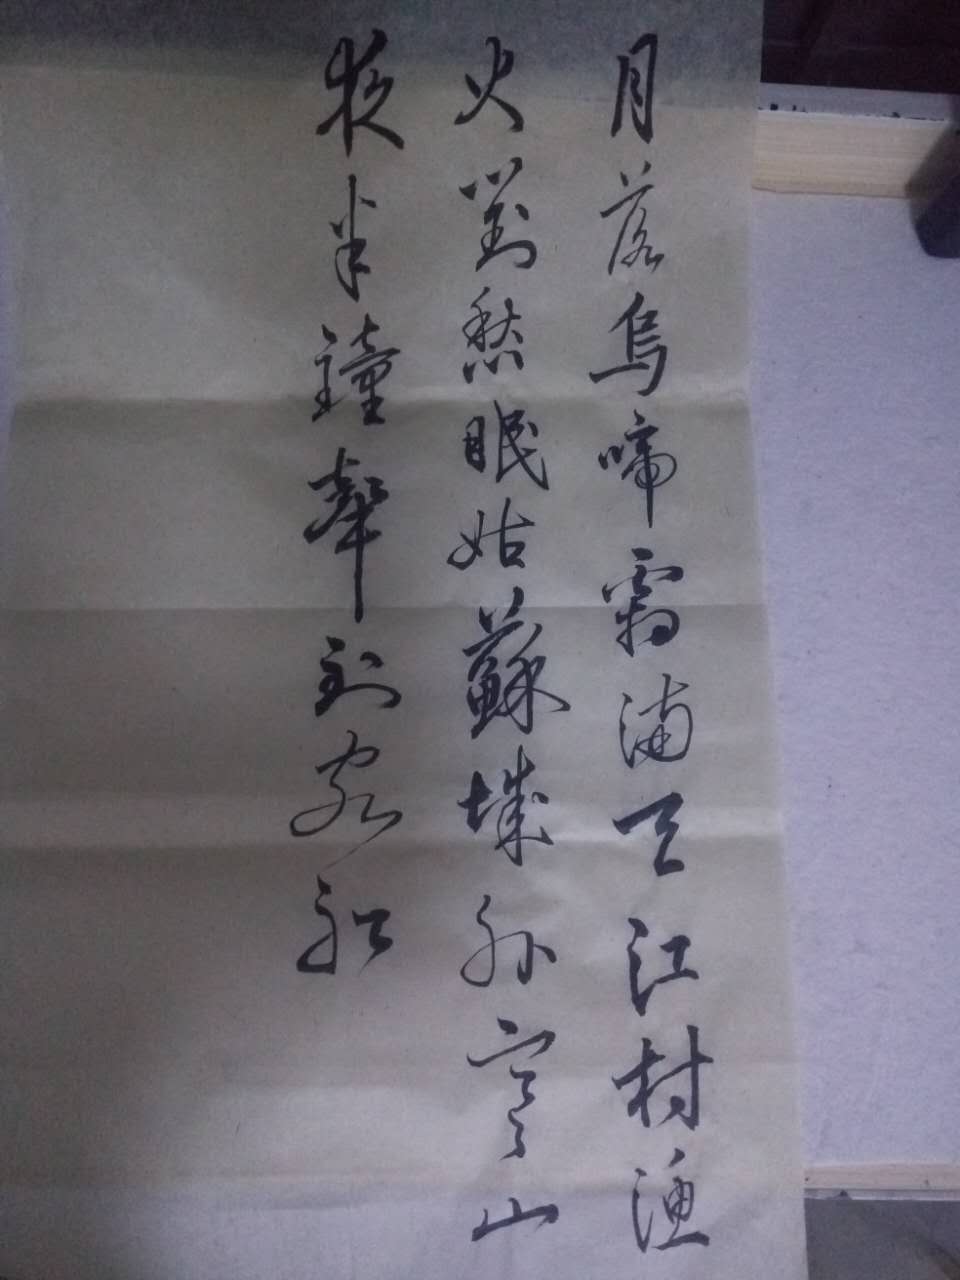 月落烏啼霜滿天江村漁
火對愁眠姑蘇城外寒山
夜半鐘聲到客船